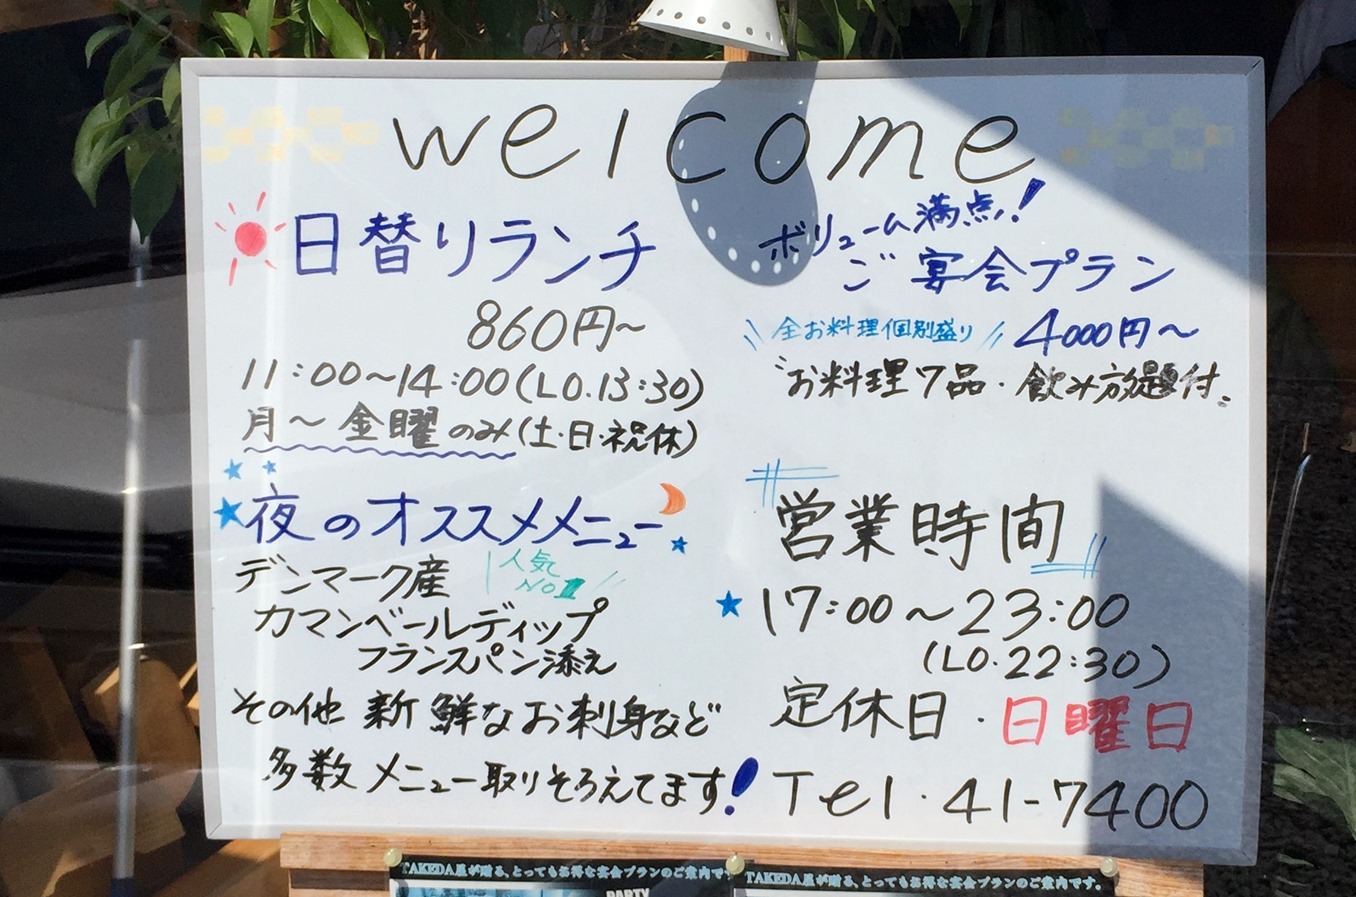 welcome
日替りランチ
860円~
11:00~14:00(LO.13:30)
月~金曜のみ(土・日・祝休)
夜のオススメメニュー
デンマーク産
人気
カマンベールディップ
フランスパン添え
その他 新鮮なお刺身など
多数メニュー取りそろえてます!
ボリューム満点!
ご宴会プラン
全お料理個別盛り 4000円~
お料理7品・飲み放題付。
営業時間
17:00~23:00
(LO.22:30)
定休日・日曜日
Tel・41-7400
TAKEDA屋が贈る、とってもお得な宴会プランのご案内です。
PARTY
TAKEDA屋が贈る、とってもお得な宴会プランのご案内です。